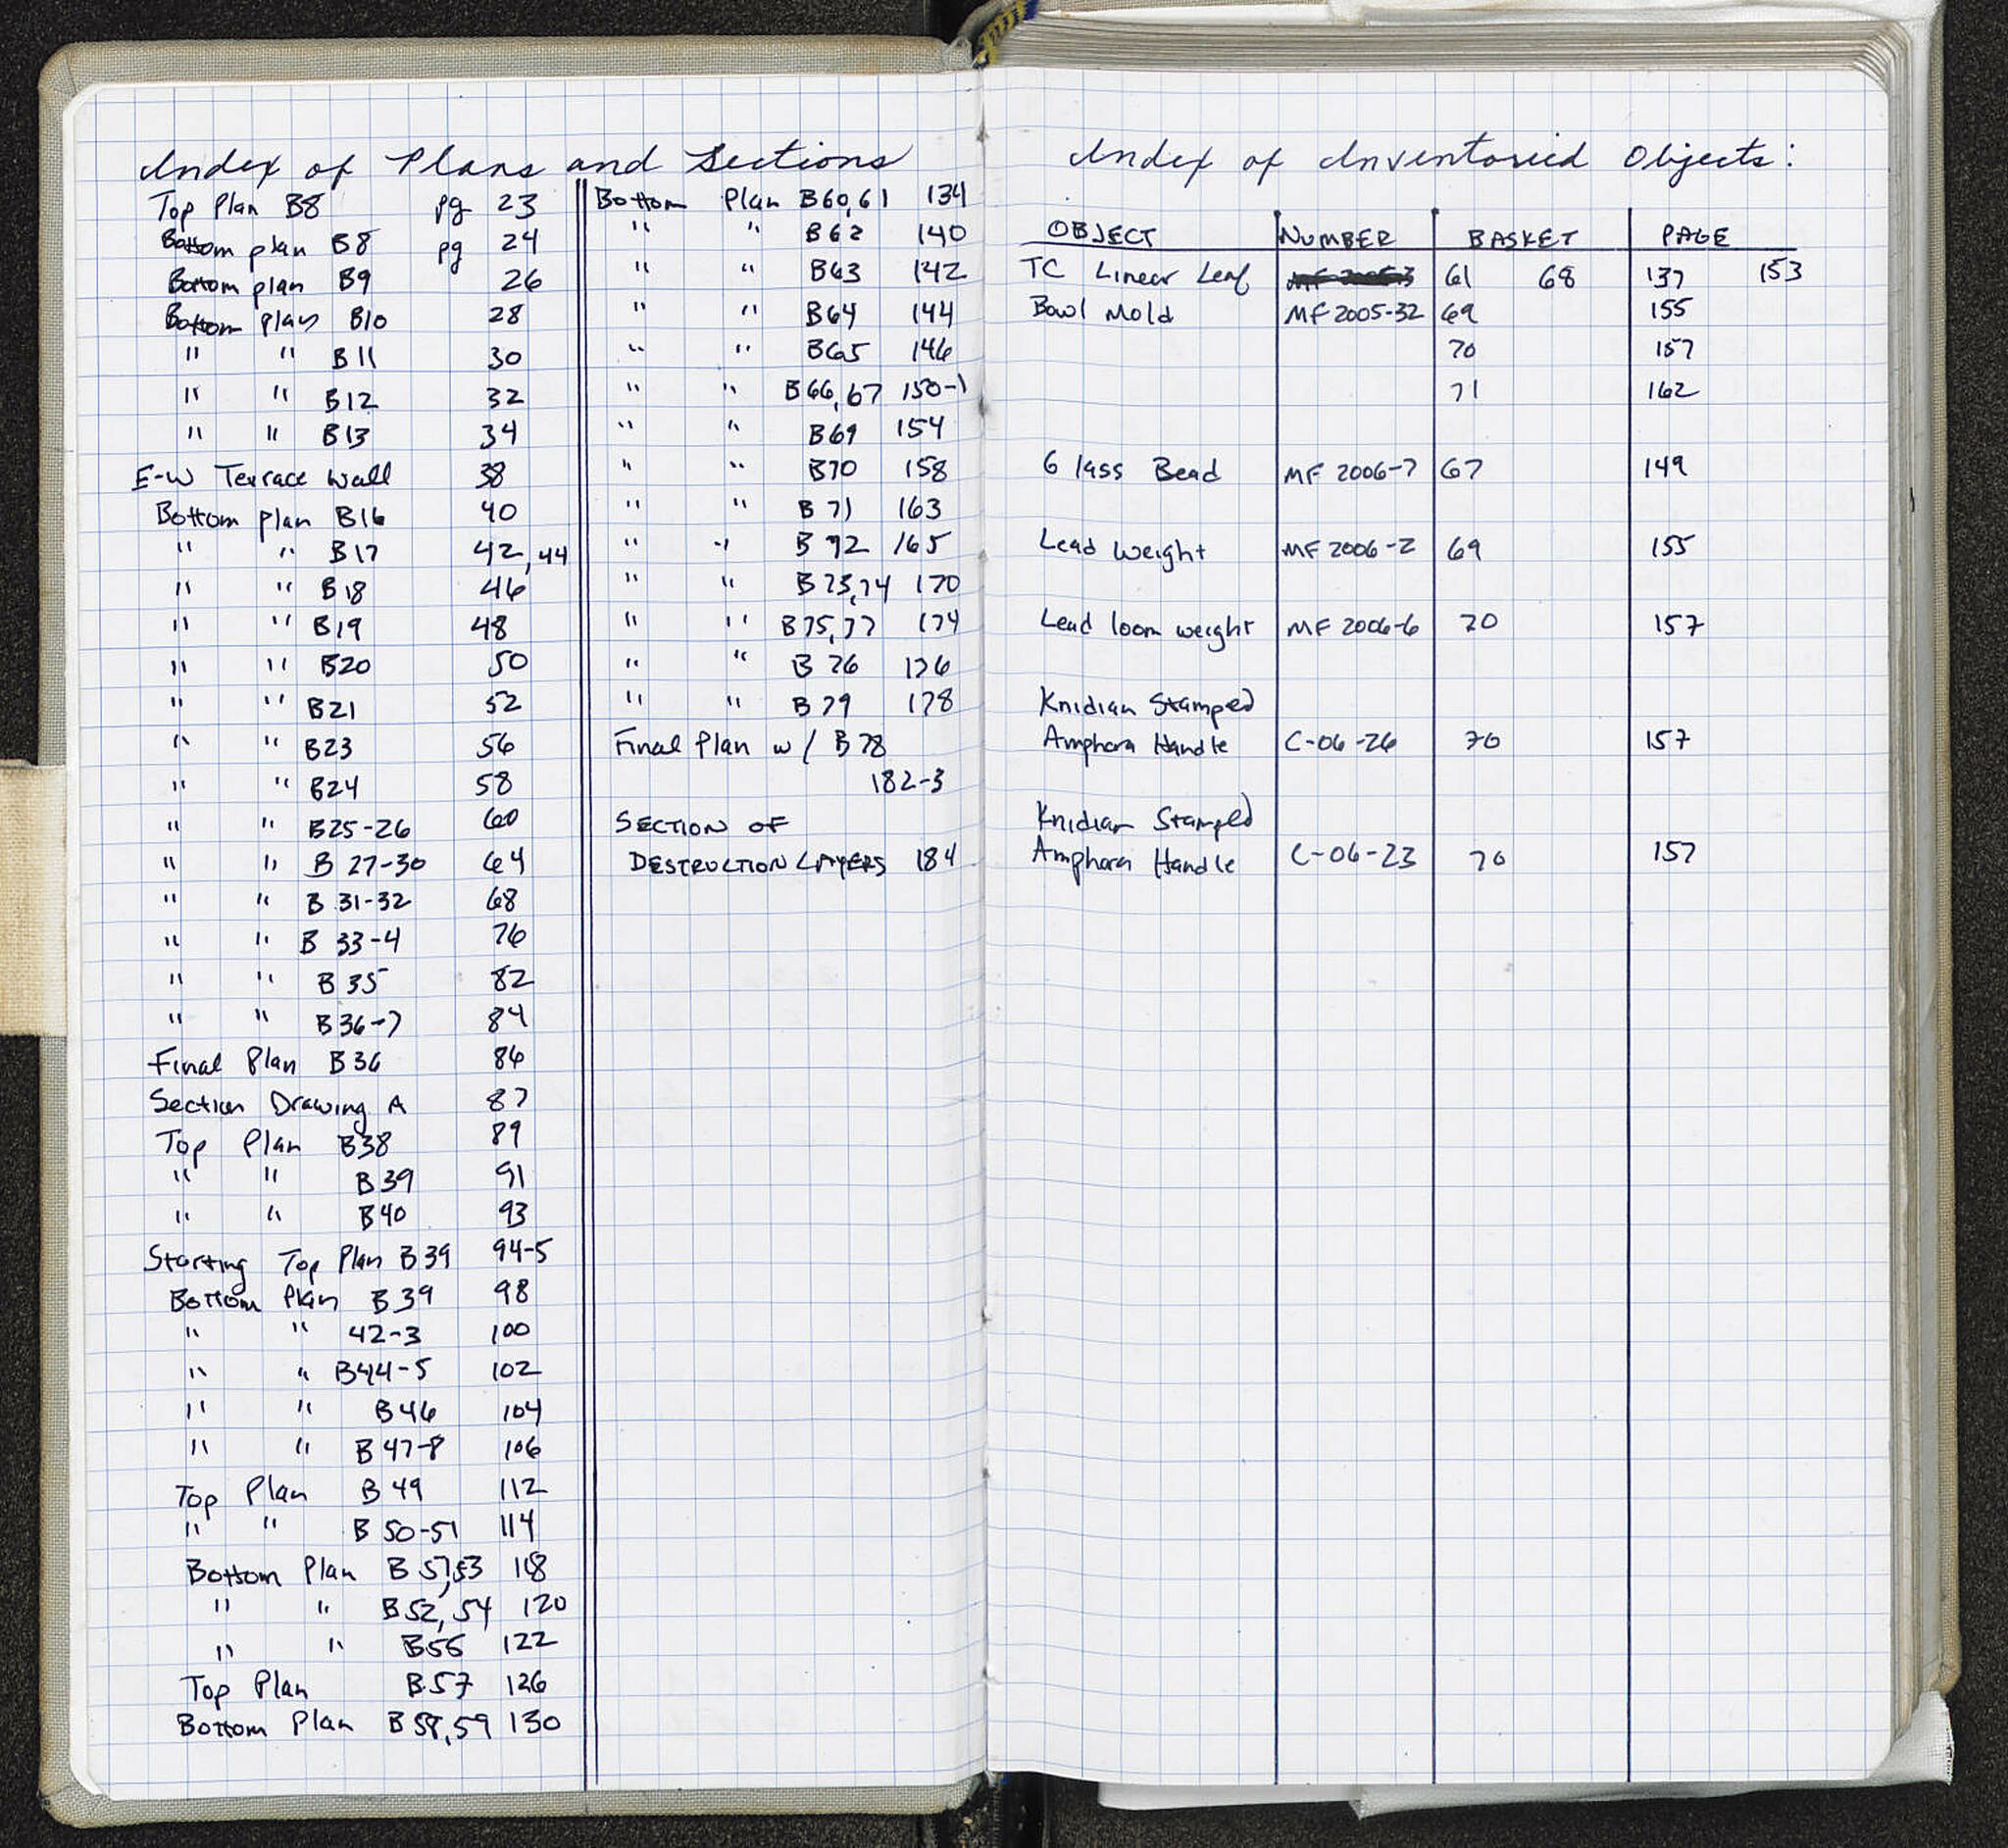 Index of Plans and Sections
Top Plan B8 pg 23
Bottom plan B8 pg 24
Bottom plan B9 26
Bottom plan B10 28
" " B11 30
" " B12 32
" " B13 34
E-W Terrace Wall 38
Bottom plan B16 40
" " B17 42, 44
" " B18 46
" " B19 48
" " B20 50
" " B21 52
" " B23 56
" " B24 58
" " B25-26 60
" " B 27-30 64
" " B 31-32 68
" " B 33-4 76
" " B 35 82
" " B36-7 84
Final Plan B36 86
Section Drawing A 87
Top Plan B38 89
" " B39 91
" " B40 93
Starting Top Plan B39 94-5
Bottom Plan B39 98
" " 42-3 100
" " B44-5 102
" " B46 104
" " B47-8 106
Top Plan B49 112
" " B 50-51 114
Bottom Plan B 57,53 118
" " B52, 54 120
" " 122
Top Plan B57 126
Bottom Plan B 58,59 130
Bottom Plan B60,61 134
" " B62 140
" " B63 142
" " B64 144
" " B65 146
" " B66,67 150-1
" " B69 154
" " B70 158
" " B71 163
" " B 72 165
" " B73,74 170
" " B75,77 174
" " B 76 176
" " B79 178
Final Plan w/ B78
182-3
SECTION OF
DESTRUCTION LAYERS 184
Index of Inventoried Objects:
OBJECT NUMBER BASKET PAGE
TC Linear Leaf 61 68 137 153
Bowl Mold MF 2005-32 69 155
70 157
71 162
Glass Bead MF 2006-7 67 149
Lead Weight MF 2006-2 69 155
Lead loom weight MF 2006-6 70 157
Knidian Stamped
Amphora Handle C-06-26 70 157
Knidian Stamped
Amphora Handle C-06-23 70 157